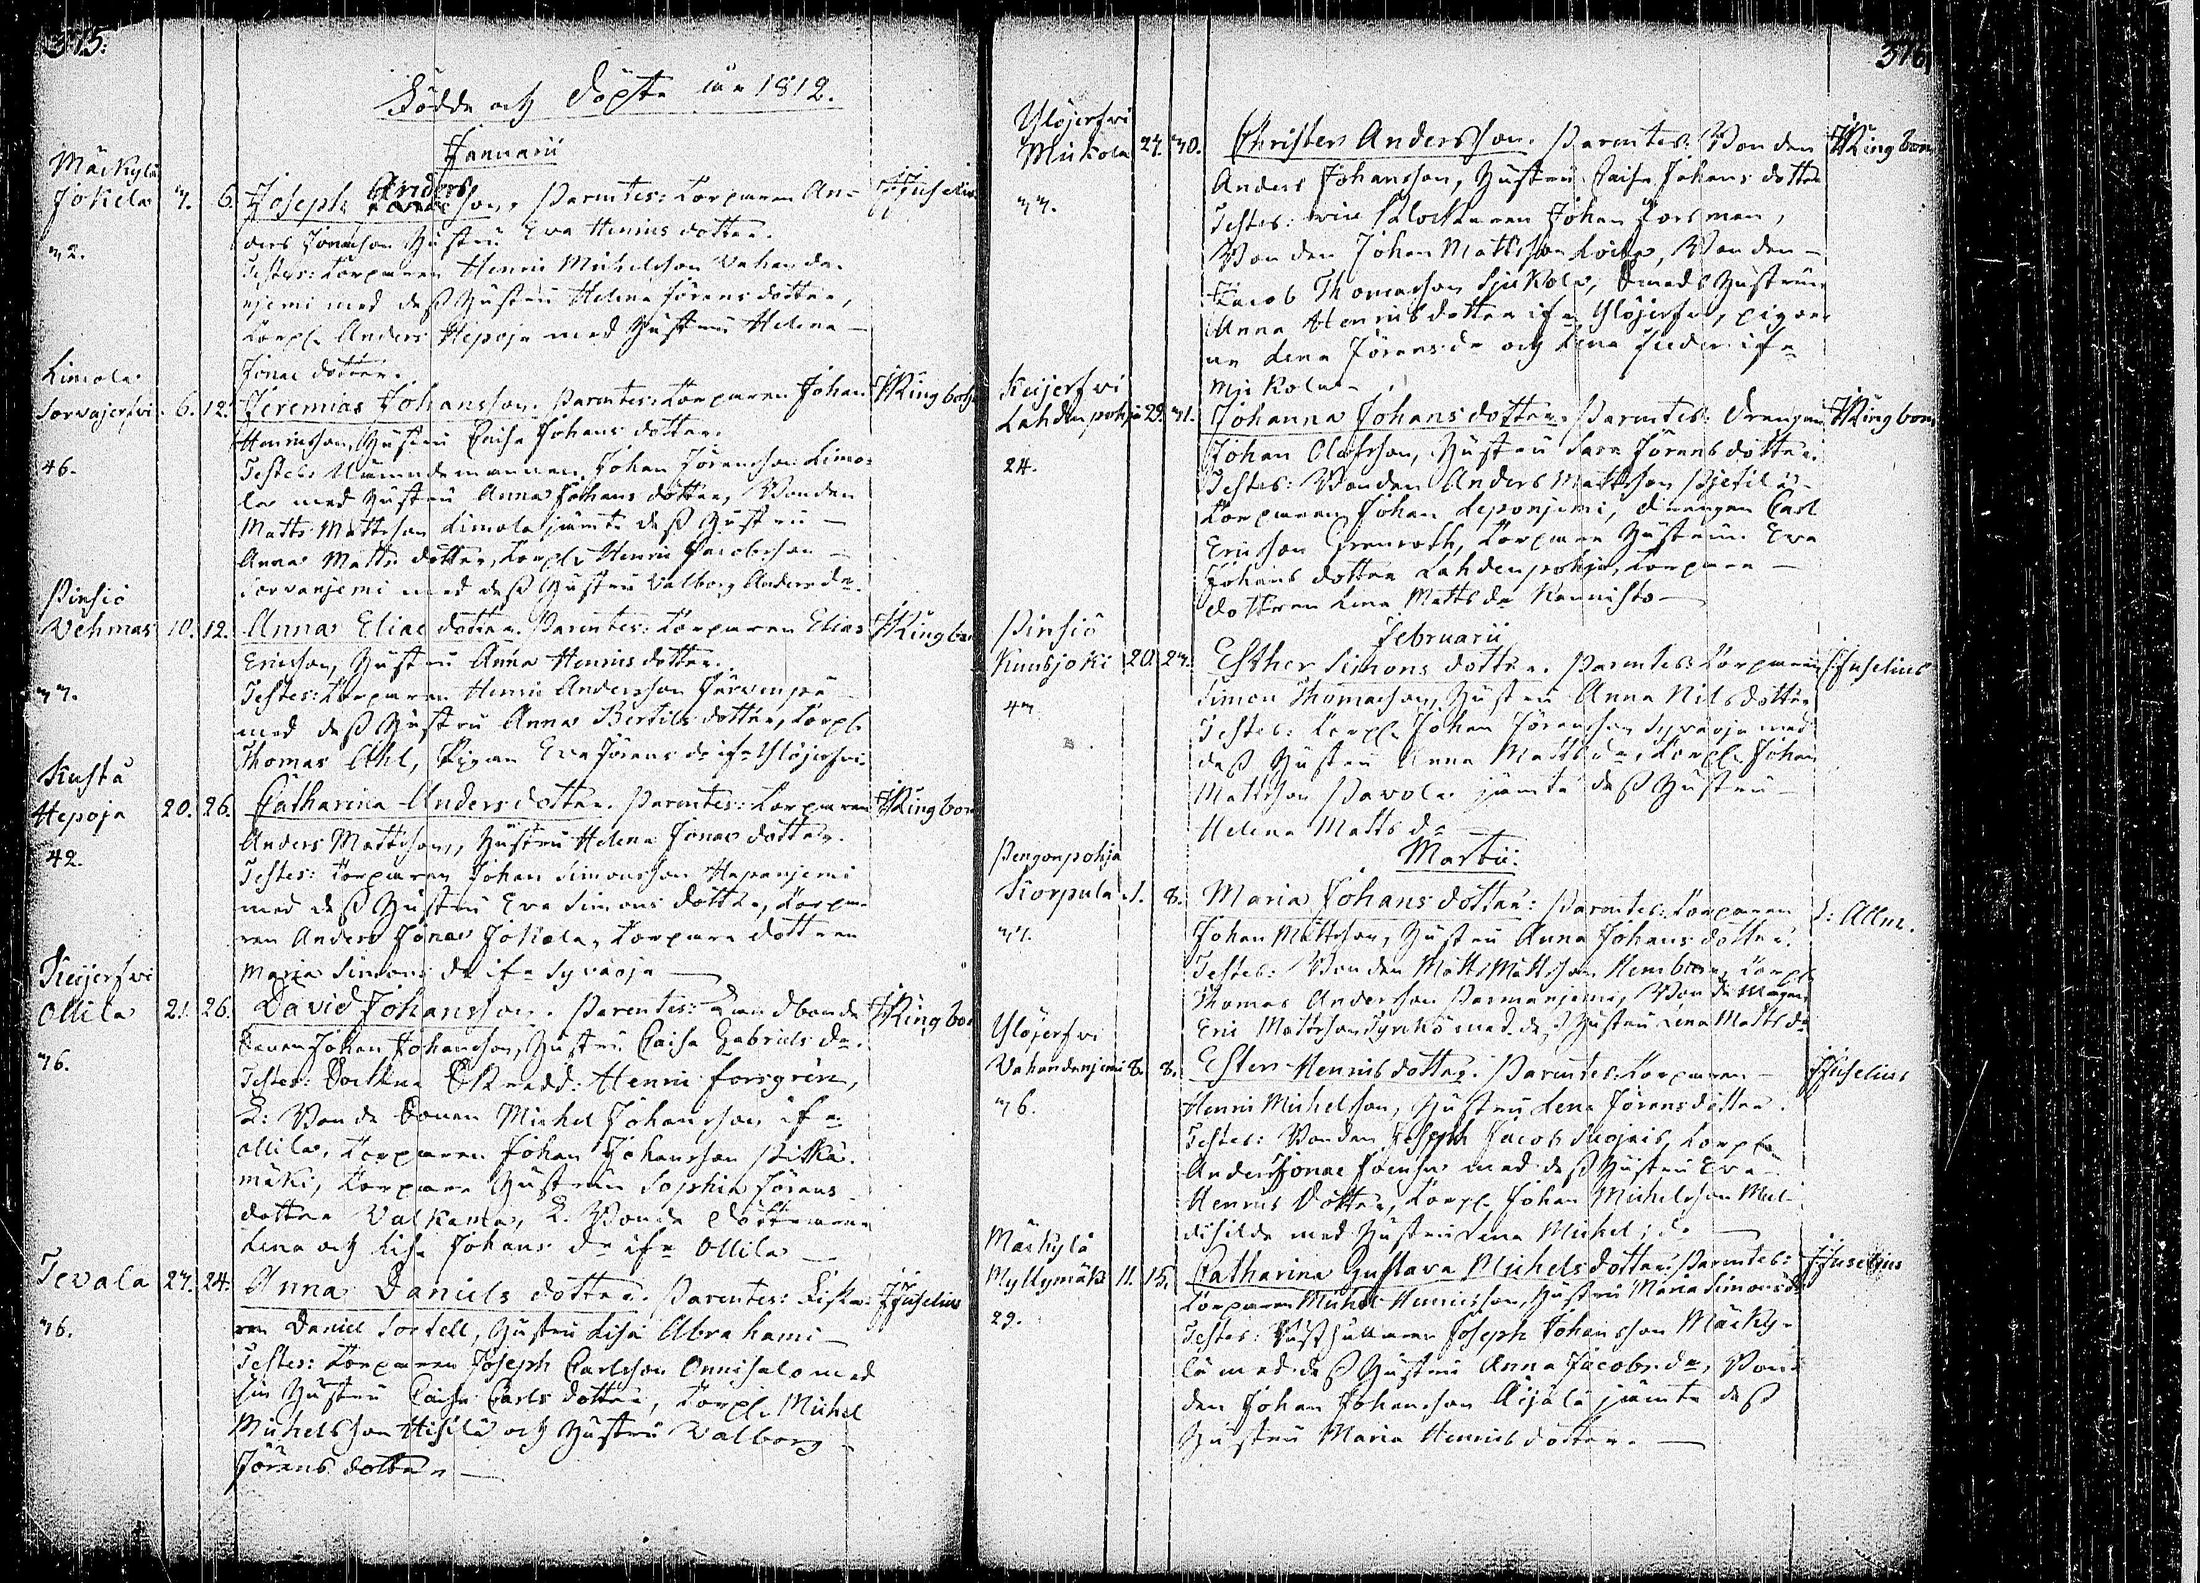 315.
Födde och Döpte år 1812.
Januarii
Mäckylä
Jokela 3. 6. Joseph Andersson. Parentes: Torparen An- Fuselius
32. ders Jonaeson Hustru Eva Henrics dotter.
Testes: Torparen Henric Michelsson Vahanda-
njemi med dess Hustru Helena Jörens dotter,
Torp. Anders Hepoja med Hustru Helena
Jonae dotter.
Limola
Sorvajerfvi 6. 12. Jeremias Johansson. Parentes: Torparen Johan Ringbohm
Henricsson, Hustru Caisa Johans dotter.
46. Testes: Nämndemannen Johan Jörensson Limo-
la med Hustru Anna Johans dotter, Bonden
Matts Mattsson Limola jämte dess Hustru
Anna Matts dotter, Torp. Henric Jacobsson
Sorvanjemi med dess Hustru Valborg Anders dr.
Pinsiö
Vehmas 10. 12. Anna Eliae dotter. Parentes: Torparen Elias Ringbom
Ericsson, Hustru Anna Henrics dotter.
33. Testes: Torparen Henric Andersson Järvenpä
med dess Hustru Anna Bertils dotter, Torp.
Thomas Ahl, Pigan Eva Jörens dr ifr Ylöjerfvi
Kusta
Hepoja 20. 26. Catharina Anders dotter. Parentes: Torparen Ringbom
Anders Mattsson, Hustru Helena Jonae dotter.
42. Testes: Torparen Johan Simonsson Hapanjemi
med dess Hustru Eva Simons dotter, Torpa-
ren Anders Jonae Jokela, Torpare dottren
Maria Simons dr ifr Syväoja
Keijerfvi
Ollila 21. 26. David Johansson. Parentes: Landbonde Ringbom
sonen Johan Johansson, Hustru Caisa Gabriels dr.
36. Testes: Sockne Skredd: Henric Forsgrén,
L: Bonde Sonen Michel Johansson ifr
Ollila, Torparen Johan Johansson Pitkä-
mäki, Torpare Hustrun Sophia Jörens
dotter Valkama, L. Bonde döttrarna
Lena och Lisa Johans dr ifr Ollila
Tevala 23. 24. Anna Daniels dotter. Parentes: Fiska- Fuselius
36. ren Daniel Sordell, Hustru Lisa Abrahami
Testes: Torparen Joseph Carlsson Onnisalo med
sin Hustru Caisa Carls dotter, Torp. Michel
Michelsson Hisilä och Hustru Valborg
Jörens dotter
316.
Ylöjerfvi
Mickola 27. 30. Christer Andersson. Parentes: Bonden Ringbom
Anders Johansson, Hustru Caisa Johans dotter
33. Testes: Klockaren Johan Forsman,
Bonden Johan Mattsson, Bonden
Jacob Thomasson Sjukola, Hustrun
Anna Henrics dotter ifr Ylöjerfvi, pigor-
na Lena Jörens dr och Lena ifr
Mickola
Keijerfvi
Lahdenpohja 29. 31. Johanna Johans dotter. Parentes: Drengen Ringbom
Johan Olofsson, Hustru Sara Jörens dotter.
24. Testes: Bonden Anders Mattsson
Torparen Johan Leponjemi, drengen Carl
Ericsson Grenroth, Torpare Hustrun Eva
Johans dotter Lahdenpohja, Torpare
dottren Lena Matts dr Kannisto
Februarii
Pinsiö
Kuusjoki 20. 23. Esther Simons dotter. Parentes: Torparen Fuselius
Simon Thomasson, Hustru Anna Nils dotter
43. Testes: Torp. Johan Jörensson Syväoja med
dess Hustru Anna Matts dr, Torp. Johan
Mattsson Pavola jämte dess Hustru
Helena Matts dr
Martii.
Pengonpohja
Korpula 1. 8. Maria Johans dotter: Parentes: Torparen L: Allm.
Johan Mattsson, Hustru Anna Johans dotter.
34. Testes: Bonden Matts Mattsson, Torp.
Thomas Andersson Parmanjemi, Bonde
Eric Mattsson Syrkö med dess Hustru Lena Matts dr
Ylöjerfvi
Vahandanjemi 8. 8. Ester Henrics dotter. Parentes: Torparen Fuselius
36. Henric Michelsson, Hustru Lena Jörens dotter.
Testes: Bonden Joseph Jacobs, Torp.
Anders Jonae med dess Hustru Eva
Henrics Dotter, Torp. Johan Michelsson
med Hustru Lena Michels dr
Mäckylä
Myllymäki 11. 15. Catharina Gustava Michels dotter. Parentes: Fuselius
Torparen Michel Henricsson, Hustru Maria Simons dr
29. Testes: Rusthållaren Joseph Johansson Mäcky-
lä med dess Hustru Anna Jacobs dr, Bon-
den Johan Johansson Äijälä jämte dess
Hustru Maria Henrics dotter.